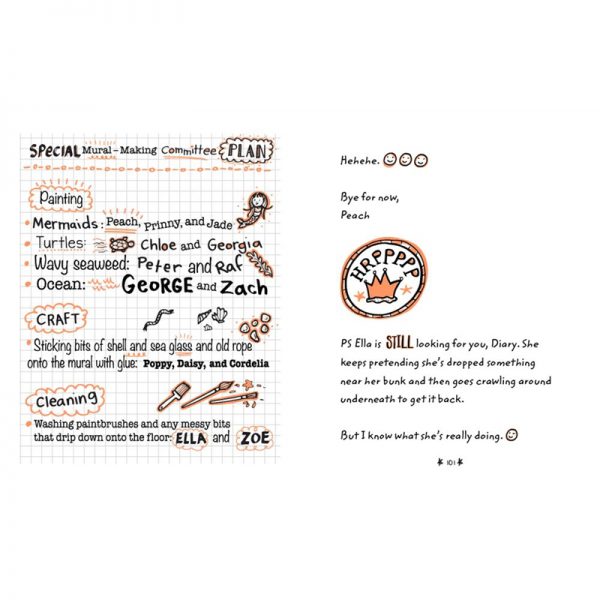 SPECIAL Mural-Making Committee PLAN
Painting
• Mermaids: Peach, Prinny, and Jade
• Turtles: Chloe and Georgia
• Wavy seaweed: Peter and Raf
• Ocean: GEORGE and Zach
CRAFT
• Sticking bits of shell and sea glass and old rope
onto the mural with glue: Poppy, Daisy, and Cordelia
Cleaning
• Washing paintbrushes and any messy bits
that drip down onto the floor: ELLA and ZOE
Hehehe.
Bye for now,
Peach
HRPPPPP
PS Ella is STILL looking for you, Diary. She
keeps pretending she's dropped something
near her bunk and then goes crawling around
underneath to get it back.
But I know what she's really doing.
101